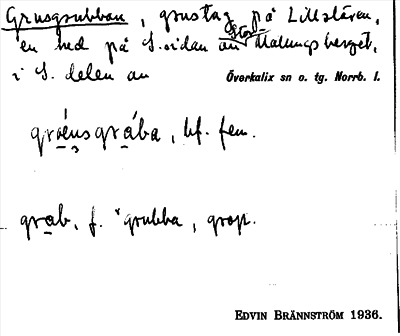 Grusgrubban, grustag på Lillslåren,
en hed på S.sidan av Stor Malungsberget,
i S. delen av Överkalix sn o. tg. Norrb. l.
gróensgrába, bf. fem.
grab, f. "grubba, grop.
EDVIN BRÄNNSTRÖM 1936.